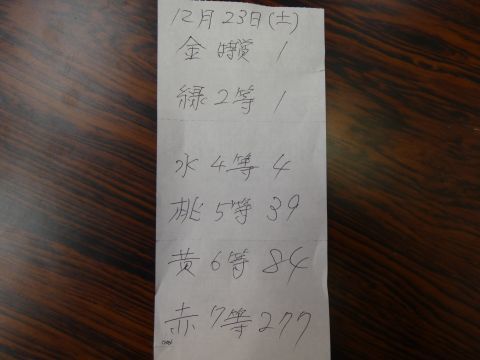 12月23日(土)
金 特賞 1
緑 2等 1
水 4等 4
桃 5等 39
黄 6等 84
赤 7等 277